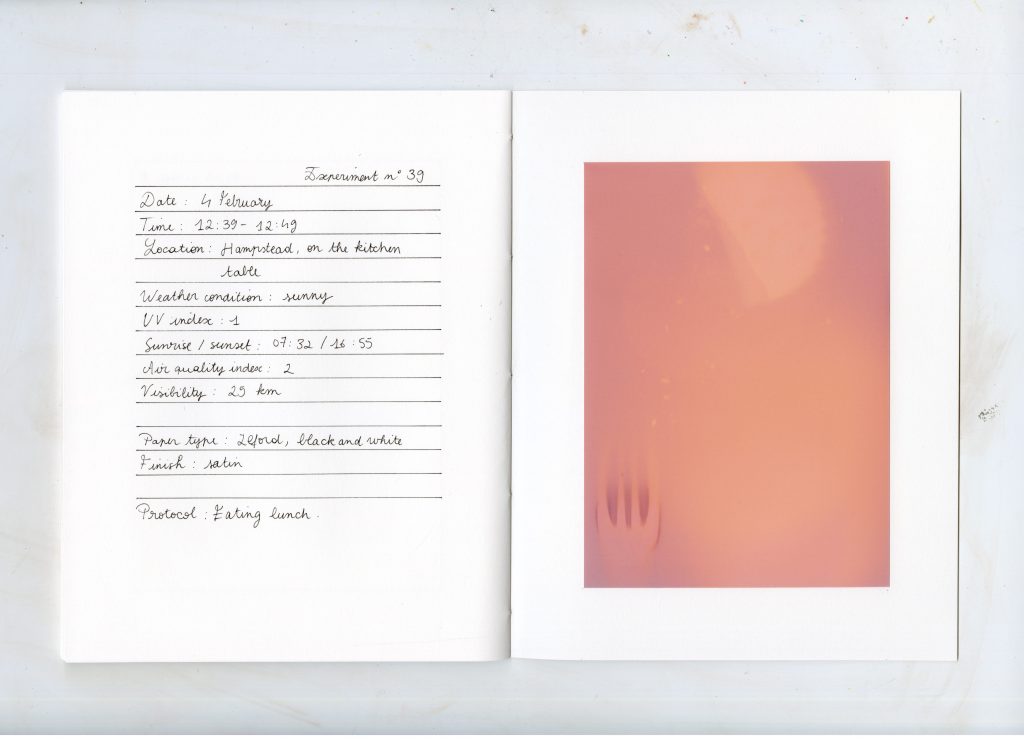 Experiment n° 39
Date : 4 February
Time : 12:39 - 12:49
Location : Hampstead, on the kitchen
table
Weather condition : sunny
UV index : 1
Sunrise / sunset : 07:32 / 16:55
Air quality index : 2
Visibility : 29 km
Paper type : Ilford, black and white
Finish : satin
Protocol : Eating lunch .